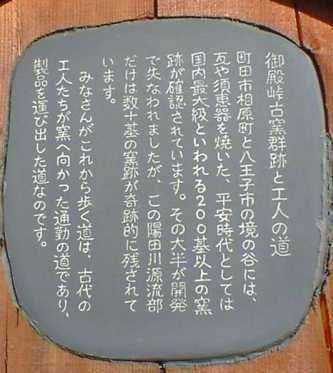 御殿峠古窯群跡と工人の道
町田市相原町と八王子市の境の谷には、
瓦や須恵器を焼いた、平安時代としては
国内最大級といわれる200基以上の窯
跡が確認されています。その大半が開発
で失なわれましたが、この陽田川源流部
だけは数十基の窯跡が奇跡的に残されて
います。
みなさんがこれから歩く道は、古代の
工人たちが窯へ向かった通勤の道であり、
製品を運び出した道なのです。